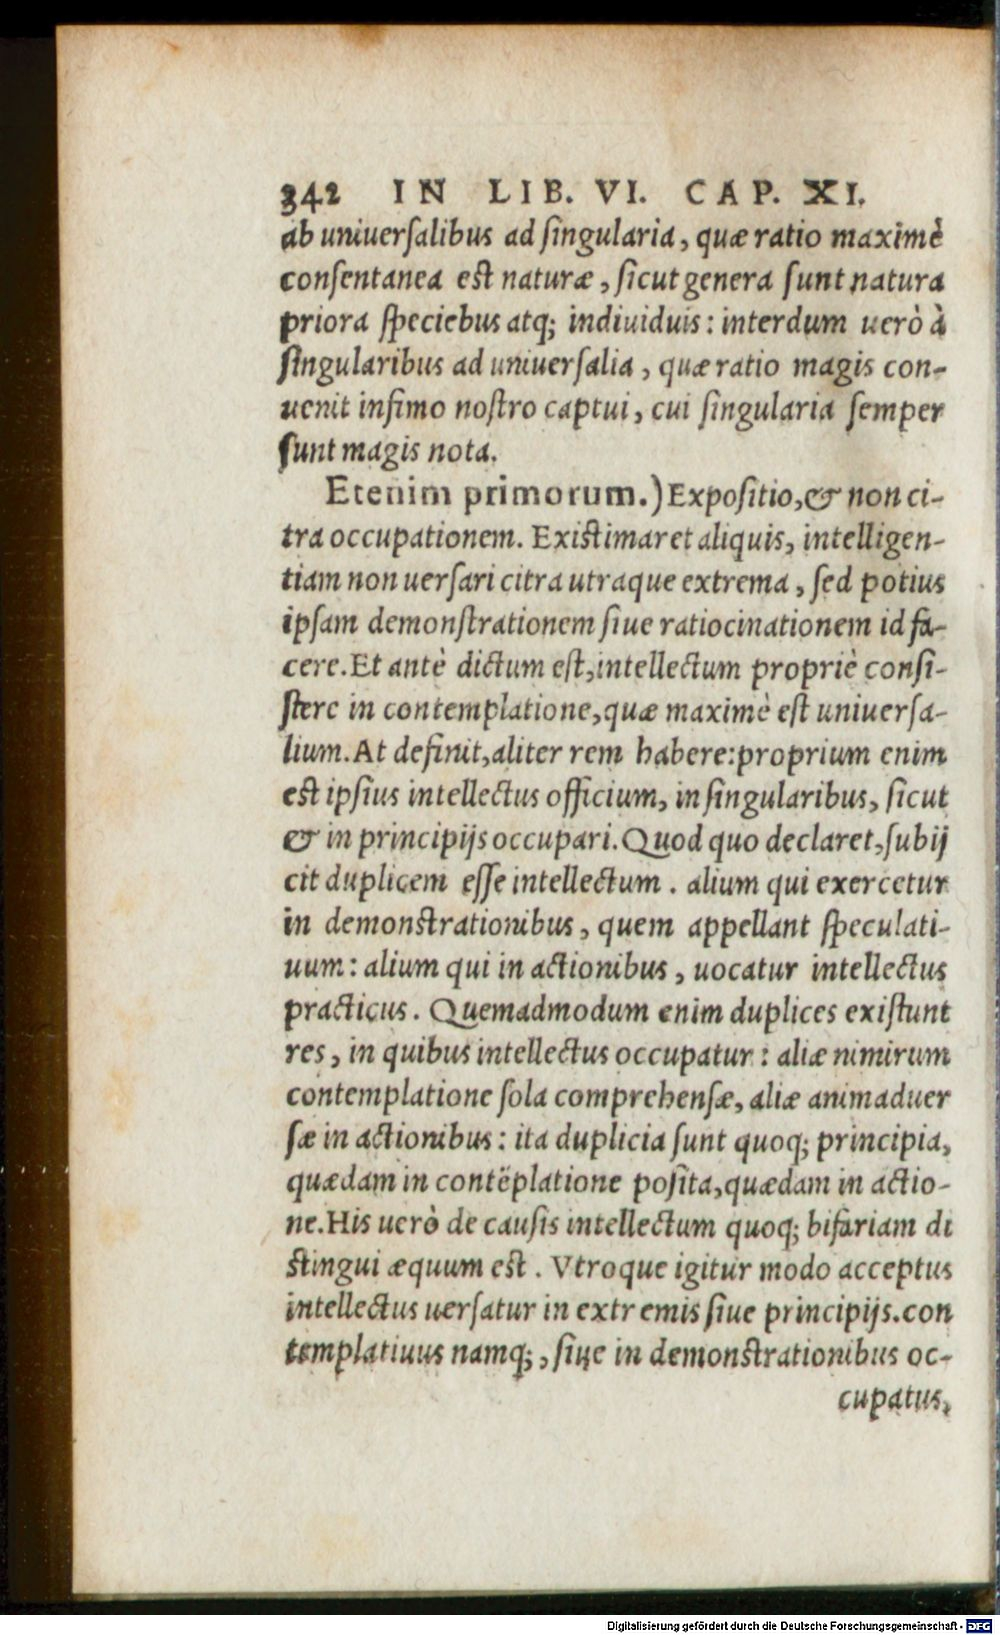 342 IN LIB. VI. CAP. XI.
ab uniuersalibus ad singularia, quæ ratio maximè
consentanea est naturæ, sicut genera sunt natura
priora speciebus atq; indiuiduis: interdum uerò à
singularibus ad uniuersalia, quæ ratio magis con-
uenit infimo nostro captui, cui singularia semper
sunt magis nota.
Etenim primorum.) Expositio, & non ci-
tra occupationem. Existimaret aliquis, intelligen-
tiam non uersari citra utraque extrema, sed potius
ipsam demonstrationem siue ratiocinationem id fa-
cere. Et antè dictum est, intellectum propriè consi-
stere in contemplatione, quæ maximè est uniuersa-
lium. At definit, aliter rem habere: proprium enim
est ipsius intellectus officium, in singularibus, sicut
& in principijs occupari. Quod quo declaret, subij
cit duplicem esse intellectum. alium qui exercetur
in demonstrationibus, quem appellant speculati-
uum: alium qui in actionibus, uocatur intellectus
practicus. Quemadmodum enim duplices existunt
res, in quibus intellectus occupatur: aliæ nimirum
contemplatione sola comprehensæ, aliæ animaduer
sæ in actionibus: ita duplicia sunt quoq; principia,
quædam in contẽplatione posita, quædam in actio-
ne. His uerò de causis intellectum quoq; bifariam di
stingui æquum est. Vtroque igitur modo acceptus
intellectus uersatur in extremis siue principijs. con
templatiuus namq;, siue in demonstrationibus oc-
cupatus,
Digitalisierung gefördert durch die Deutsche Forschungsgemeinschaft - DFG